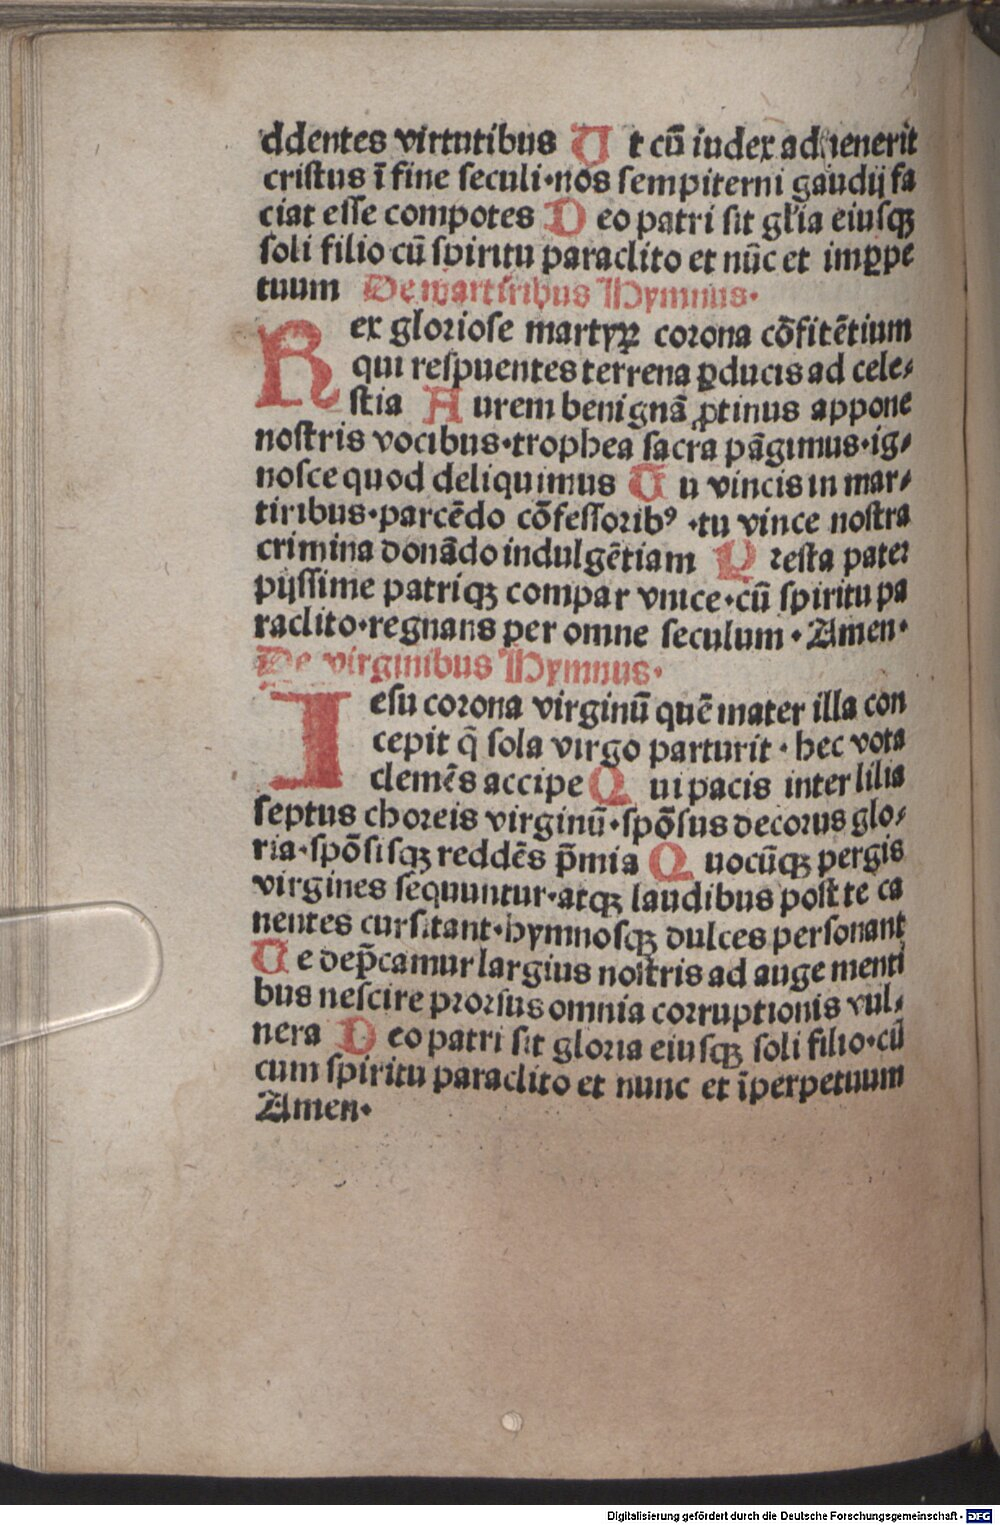 ddentes virtutibus Ut cū iudex aduenerit
cristus ī fine seculi·nos sempiterni gaudij fa
ciat esse compotes Deo patri sit gl'ia eiusqꝫ
soli filio cū spiritu paraclito et nūc et imꝑpe
tuum De martiribus Hymnus·
Rex gloriose martyꝝ corona cōfitētium
qui respuentes terrena ꝓducis ad cele⸗
stia Aurem benignā ꝓtinus appone
nostris vocibus·trophea sacra pāgimus·ig⸗
nosce quod deliquimus Tu vincis in mar⸗
tiribus·parcēdo cōfessoribꝰ·tu vince nostra
crimina donādo indulgētiam Presta pater
pijssime patriqꝫ compar vnice·cū spiritu pa
raclito·regnans per omne seculum·Amen·
De virginibus Hymnus·
Iesu corona virginū quē mater illa con
cepit q̄ sola virgo parturit·hec vota
clemēs accipe Qui pacis inter lilia
septus choreis virginū·spōsus decorus glo⸗
ria·spōsisqꝫ reddēs p̄mia Quocūqꝫ pergis
virgines sequuntur·atqꝫ laudibus post te ca
nentes cursitant·hymnosqꝫ dulces personant
Te dep̄camur largius nostris ad auge menti
bus nescire prorsus omnia corruptionis vul⸗
nera Deo patri sit gloria eiusqꝫ soli filio·cū
cum spiritu paraclito et nunc et īperpetuum
Amen·
Digitalisierung gefördert durch die Deutsche Forschungsgemeinschaft - DFG